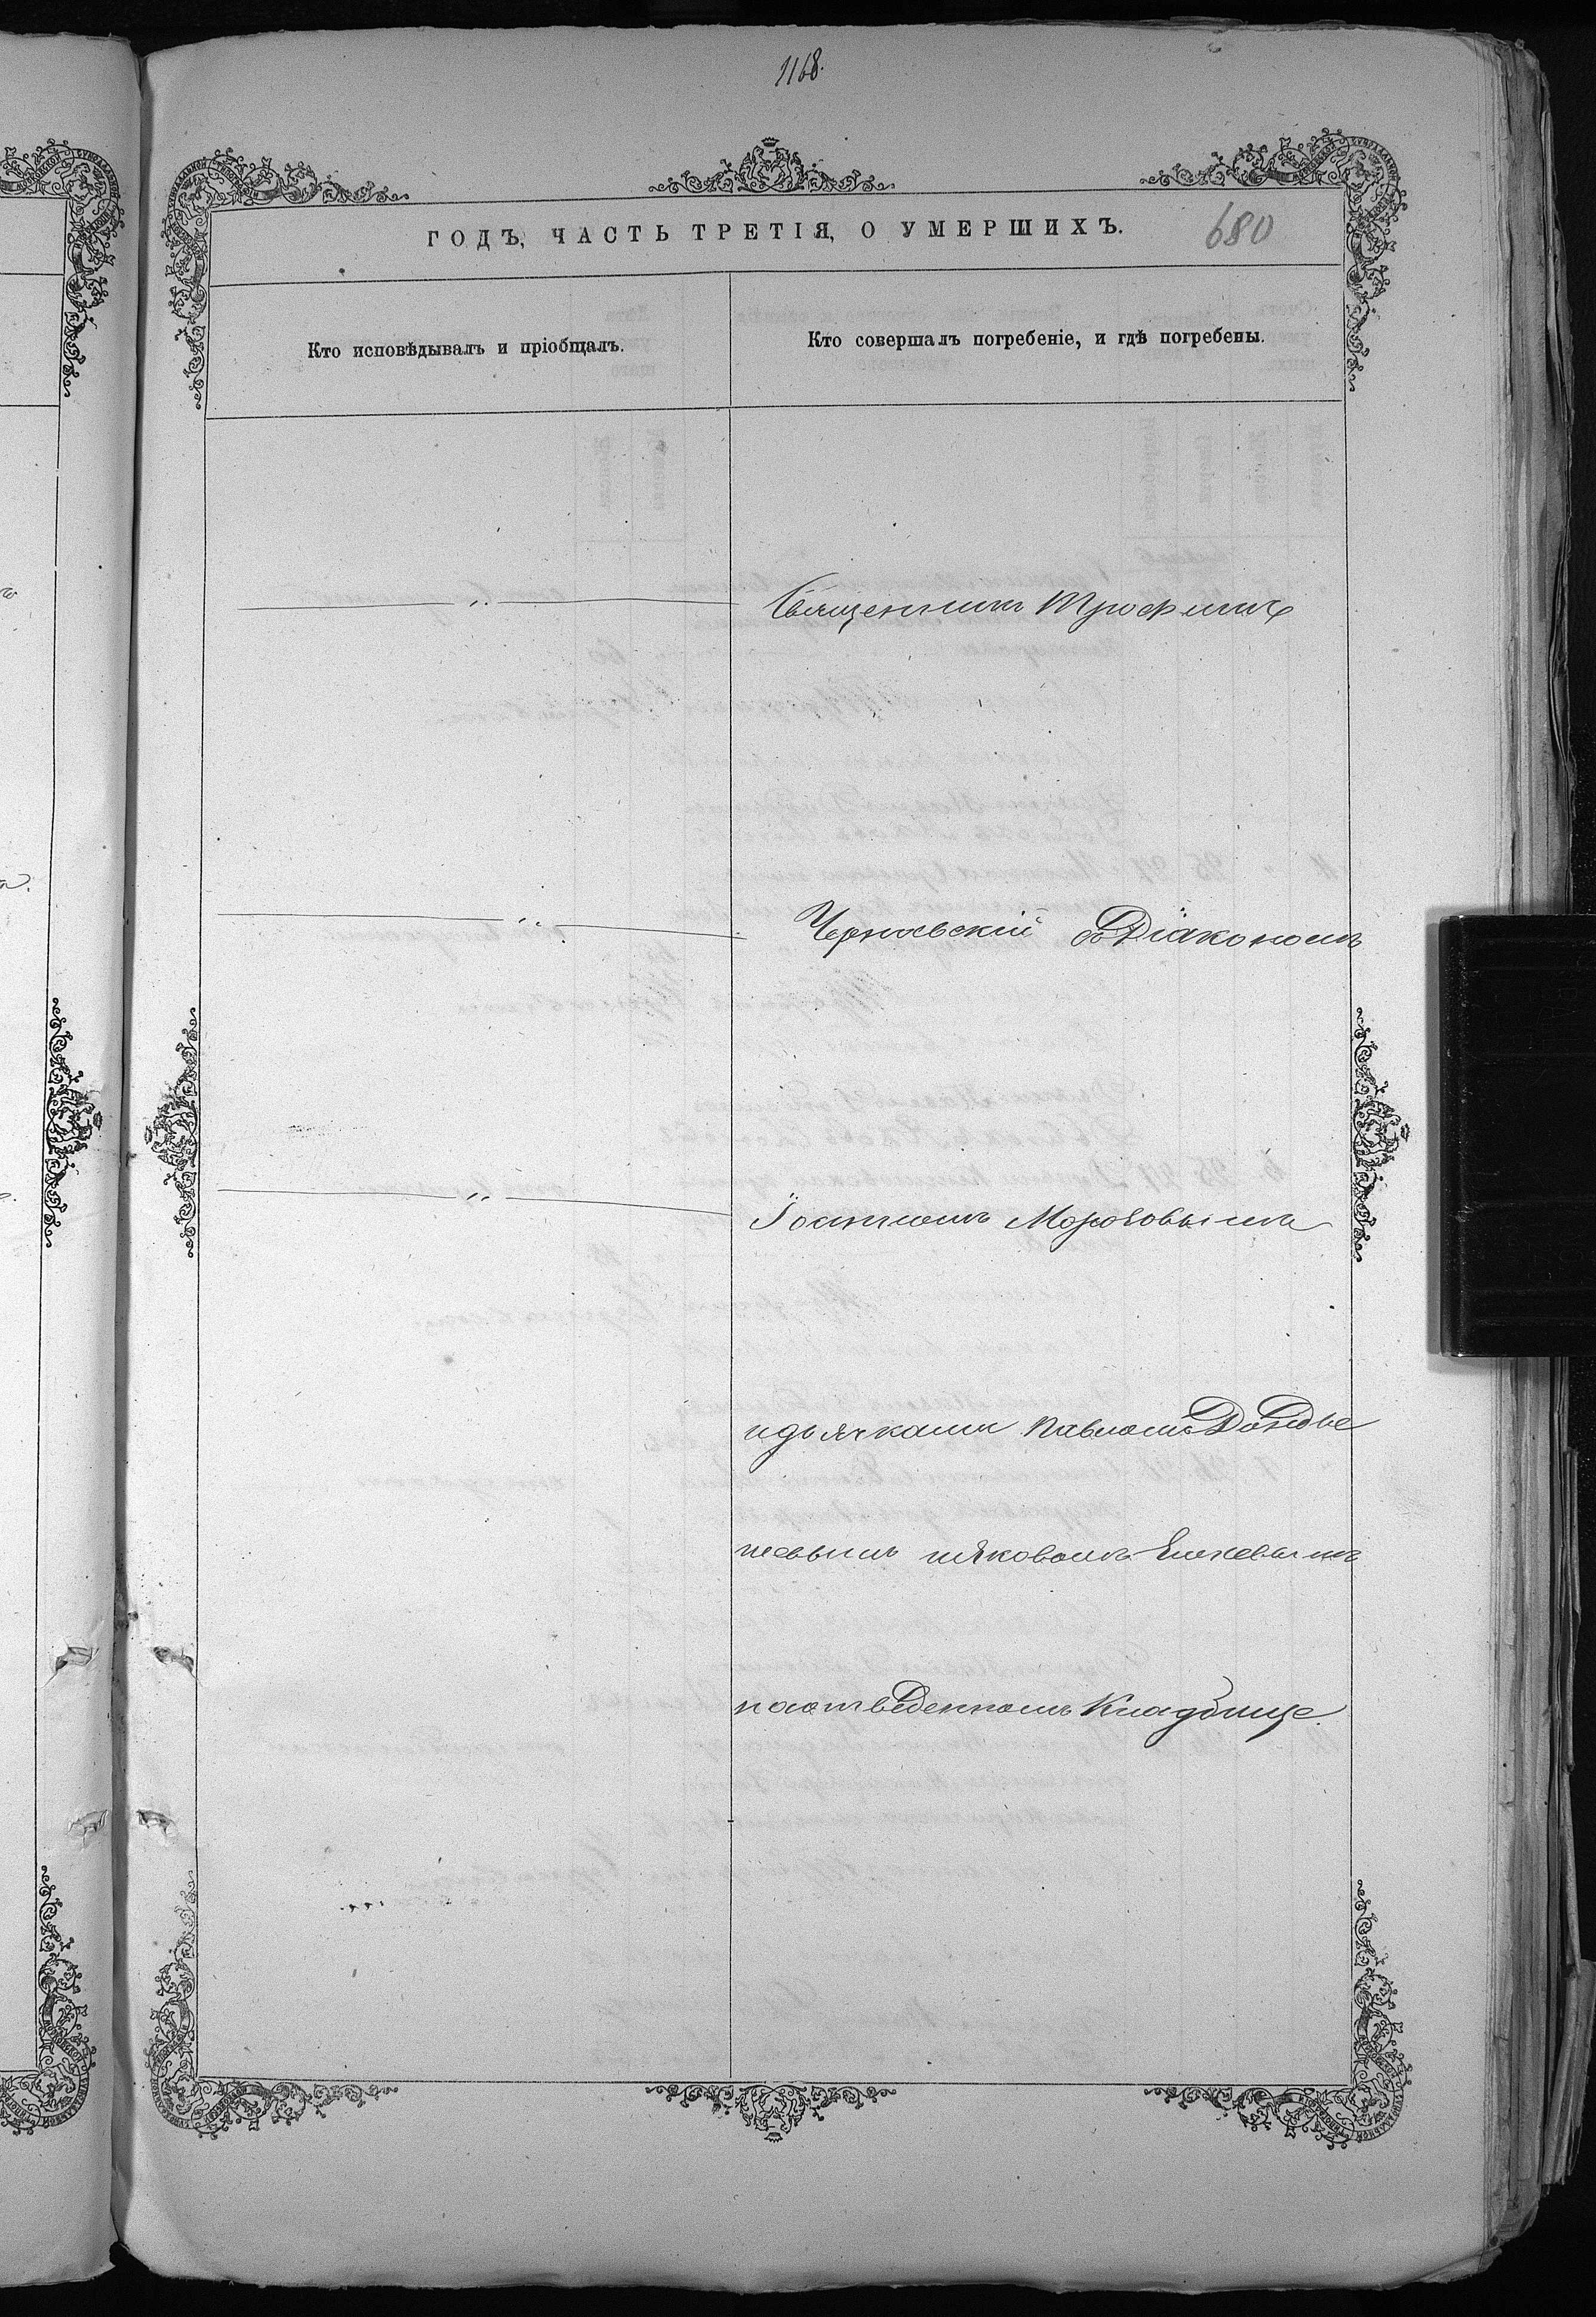 1168.
ГОДЪ, ЧАСТЬ ТРЕТІЯ, О УМЕРШИХЪ.
680
Кто исповѣдывалъ и пріобщалъ.
Кто совершалъ погребеніе, и гдѣ погребены.
Священникъ Трофимъ
Чернавскій съ Діакономъ
Іоанномъ Морозовымъ
идьячками Павломъ
иЯковомъ
наотведенномъ Кладбище.